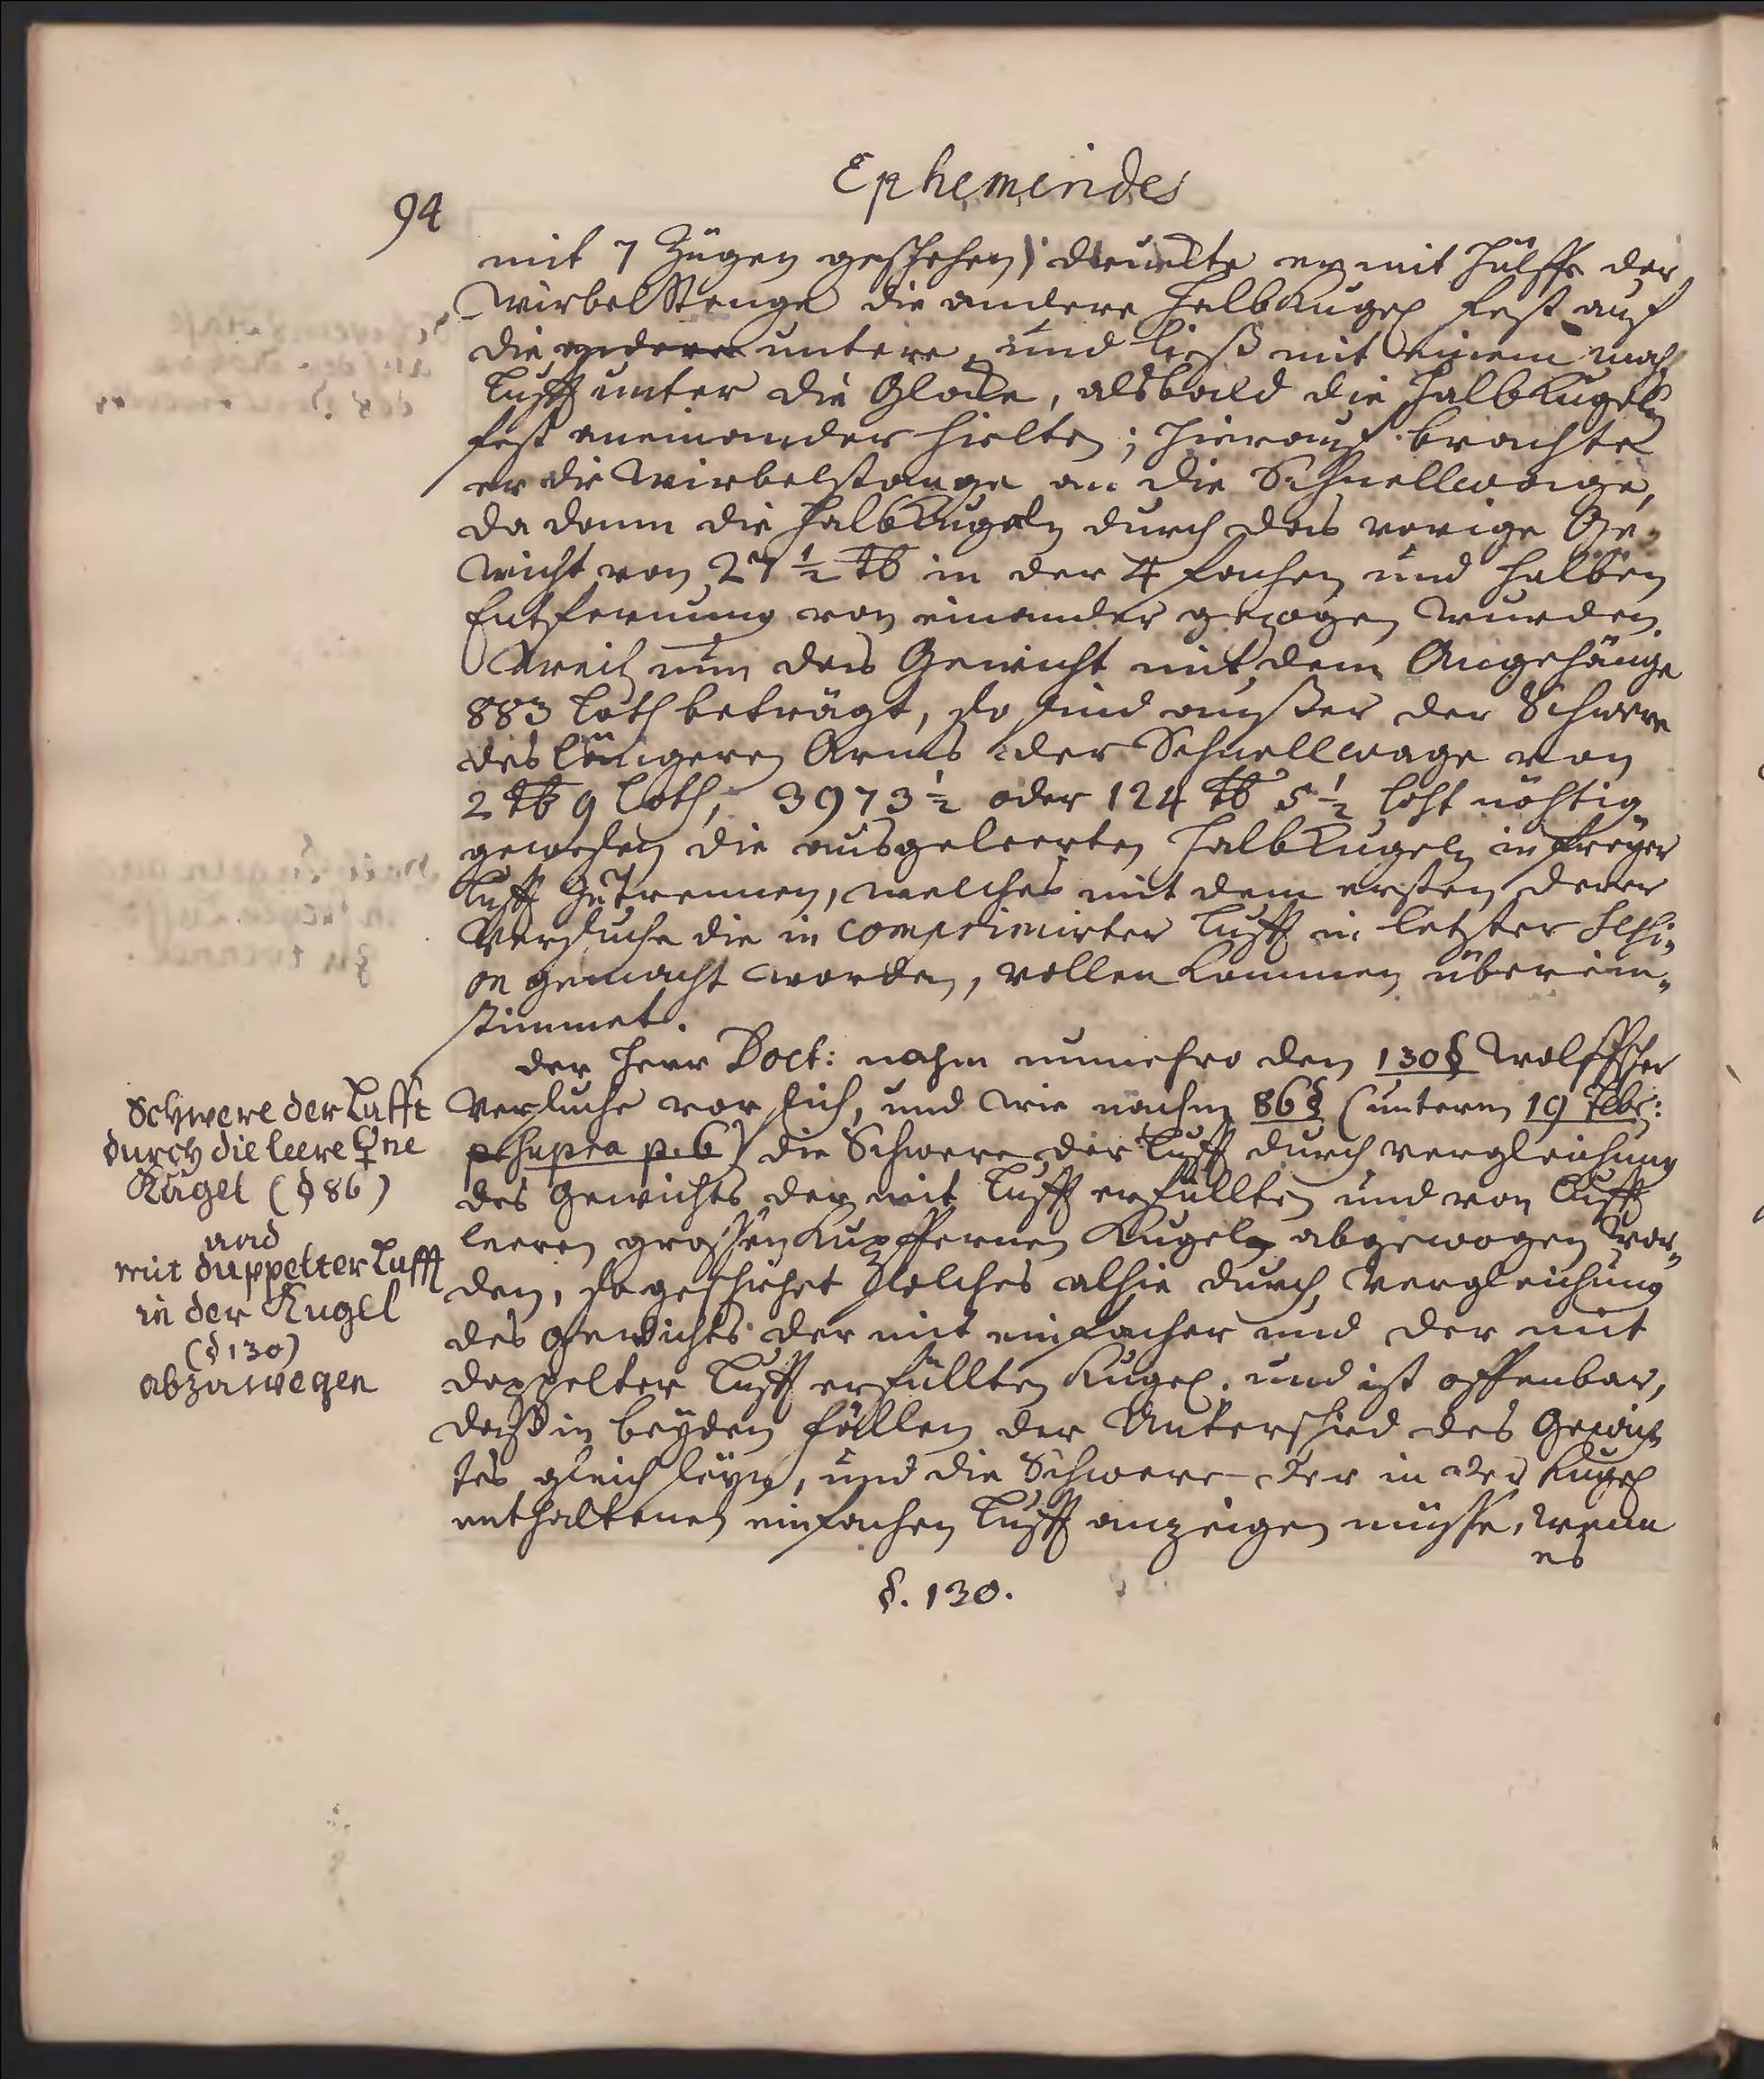 Ephemerides
94
mit 7 Zügen geschehen) druckte er mit Hülffe der
Wirbel Stange die andere HalbKugel fest auf
die andere untere, und ließ mit einem mahl
Lufft unter die Glocke, alsbald die HalbKugeln
fest aneinander hielten; hierauf brachte
er die Wirbelstange an die Schnellwage,
da dann die HalbKugeln durch das vorige Ge-
wicht von 27 ½ ℔ in der 4 fachen und halben
Entfernung von einander gezogen wurden.
Weil nun das Gewicht mit dem Angehänge
883 Loth beträgt, so sind außer der Schwere
des längeren Arms der Schnellwage von
2 ℔ 9 Loth, 3973 ½ oder 124 ℔ 5 ½ Loht nöhtig
gewesen die ausgeleerten HalbKugeln in freyer
Lufft zu trennen, welches mit dem ersten derer
Versuche die in comprimirter Lufft in letzter Sessi-
on gemacht worden, vollenkommen überein-
stimmet.
der Herr Doct: nahm nunmehro den 130§ Wolffscher
Versuche vor sich, und wie nach 86§ (unterm 19 7br:
supra p. 6) die Schwere der Lufft durch vergleichung
des Gewichts der mit Lufft erfüllten und von Lufft
leeren grossen Kupffernen Kugel abgewogen wor-
den, so geschiehet solches alhie durch Vergleichung
des Gewichts der mit einfacher und der mit
doppelter Lufft erfüllten Kugel. und ist offenbar,
daß in beyden fällen der Unterschied des Gewich-
tes gleich seyn, und die Schwere der in der Kugel
enthaltenen einfachen Lufft anzeigen müsse, wenn
es
§. 130.
Schwere der Lufft
durch die leere ♀ne
Kugel (§ 86)
und
mit duppelter Lufft
in der Kugel
(§ 130)
abzuwegen